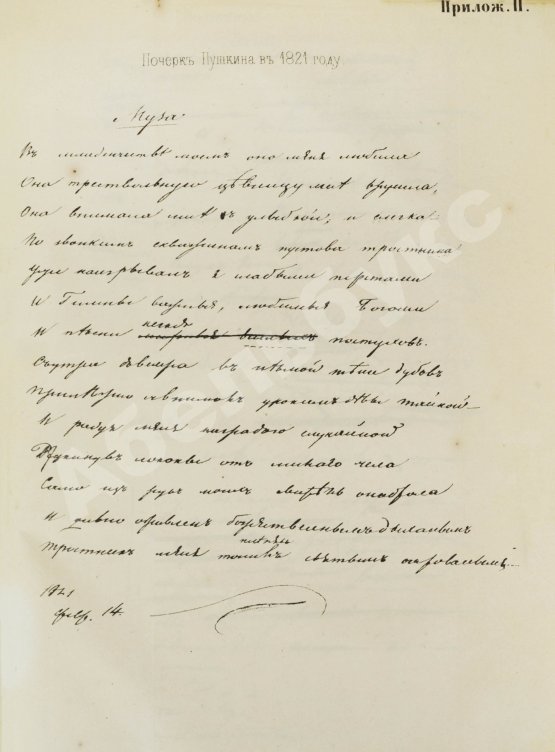 Прилож. II.
Почеркъ Пушкина въ 1821 году
Муза.
Въ младенчествѣ моемъ она меня любила
Она
цѣвницу мнѣ вручила,
Она внимала мнѣ съ улыбкой, и слегка
По звонкимъ скважинамъ пустова тростника
Уже наигрывалъ я слабыми перстами
И Гимны важныя,
богами
И пѣсни
пастуховъ.
Съ утра до вечера въ нѣмой тѣни дубовъ
Прилѣжно я внималъ урокамъ дѣвы тайной
И радуя меня наградою случайной
Откинувъ локоны отъ милаго чела
Сама изъ рукъ моихъ свирѣль она брала
И
оживленъ божественнымъ дыханьемъ
Тростникъ меня
святымъ очарованьемъ
1821
февр. 14.
Абелукс